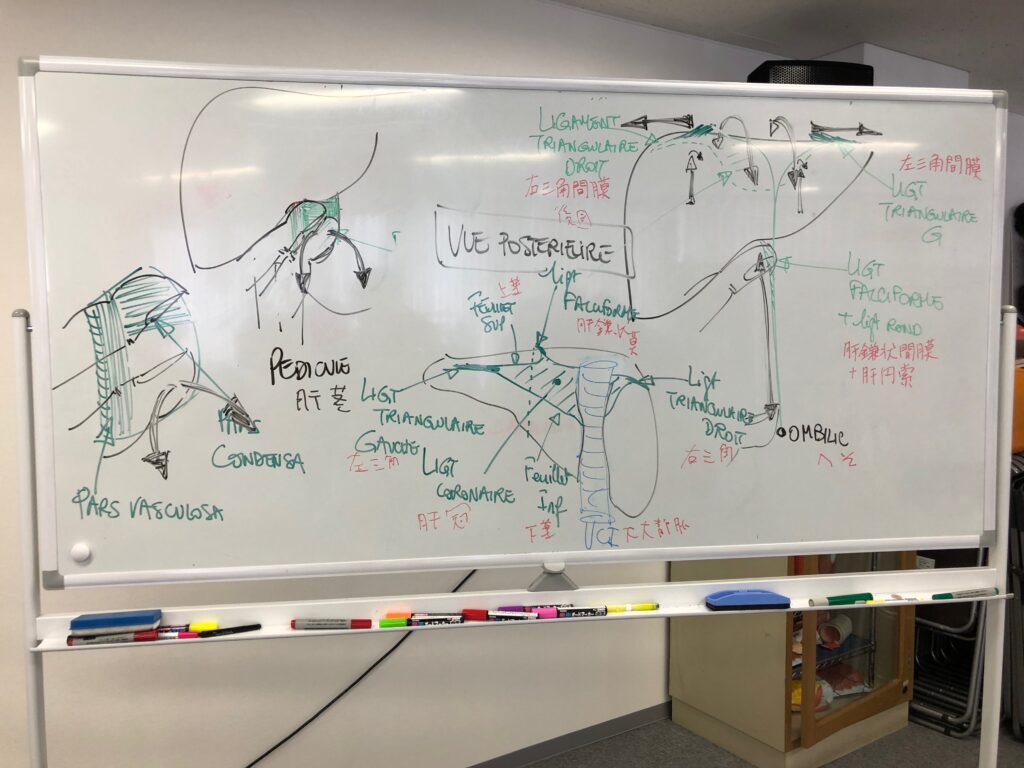 LIGAMENT
TRIANGULAIRE
DROIT
右三角間膜
左三角間膜
LIGT
TRIANGULAIRE
G
VUE POSTERIEURE
ligt
FALCIFORME
Feuillet
SUP
LIGT
FALCIFORME
+ ligt ROND
肝鎌状間膜
+肝円索
PEDICULE
肝茎
LIGT
TRIANGULAIRE
GAUCHE
左三角
LIGT
CORONAIRE
肝冠
Feuillet
Inf
下葉
VCI 下大静脈
Ligt
TRIANGULAIRE
DROIT
右三角
OMBILIC
へそ
PARS
CONDENSA
PARS VASCULOSA